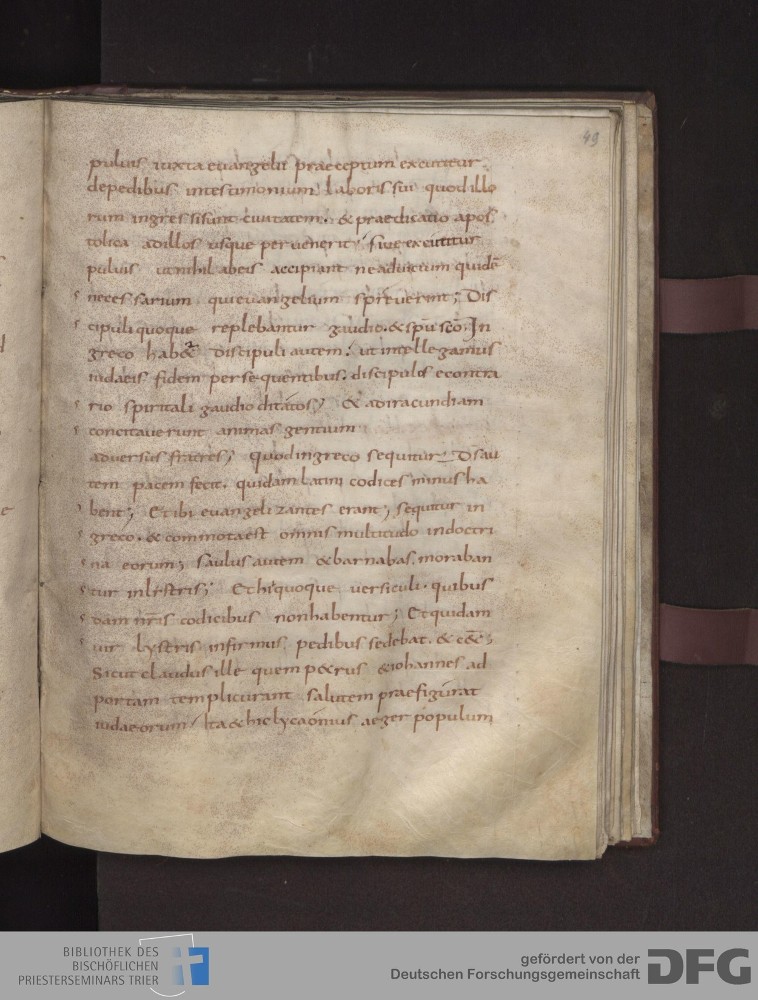 49
puluis iuxta euangelii praeceptum excutitur
depedibus intestimonium laboris sui quodillo
rum ingressisunt ciuitatem. & praedicatio apos
tolica adillos usque peruenerit; siue excutitur
puluis utnihil abeis accipiant neaduictum quidē
necessarium quieuangelium spreuerint; Dis
cipuliquoque replebantur gaudio.&sp̄u sc̄o. In
greco hab& discipuliautem. ut intellegamus
iudaeis fidem persequentibus. discipulos econtra
rio spiritali gaudio ditatos; & adiracundiam
concitauerunt animas gentium
aduersus fratres; quodingreco sequitur. D̄s au
tem pacem fecit. quidam latini codices minus ha
bent; Etibi euangelizantes erant; sequitur in
greco. & commotaest omnis multitudo indoctri
na eorum; saulus autem &barnabas. moraban
tur inlistris; Ethiquoque uersiculi. quibus
dam nr̄is codicibus nonhabentur; Etquidam
uir lystris infirmus pedibus sedebat. & c&̄;
Sicut claudus ille quem p&rus &iohannes ad
portam templicurant salutem praefigurat
iudaeorum; Ita & hic lycaonius aeger populum
BIBLIOTHEK DES
BISCHÖFLICHEN
PRIESTERSEMINARS TRIER
gefördert von der
Deutschen Forschungsgemeinschaft
DFG